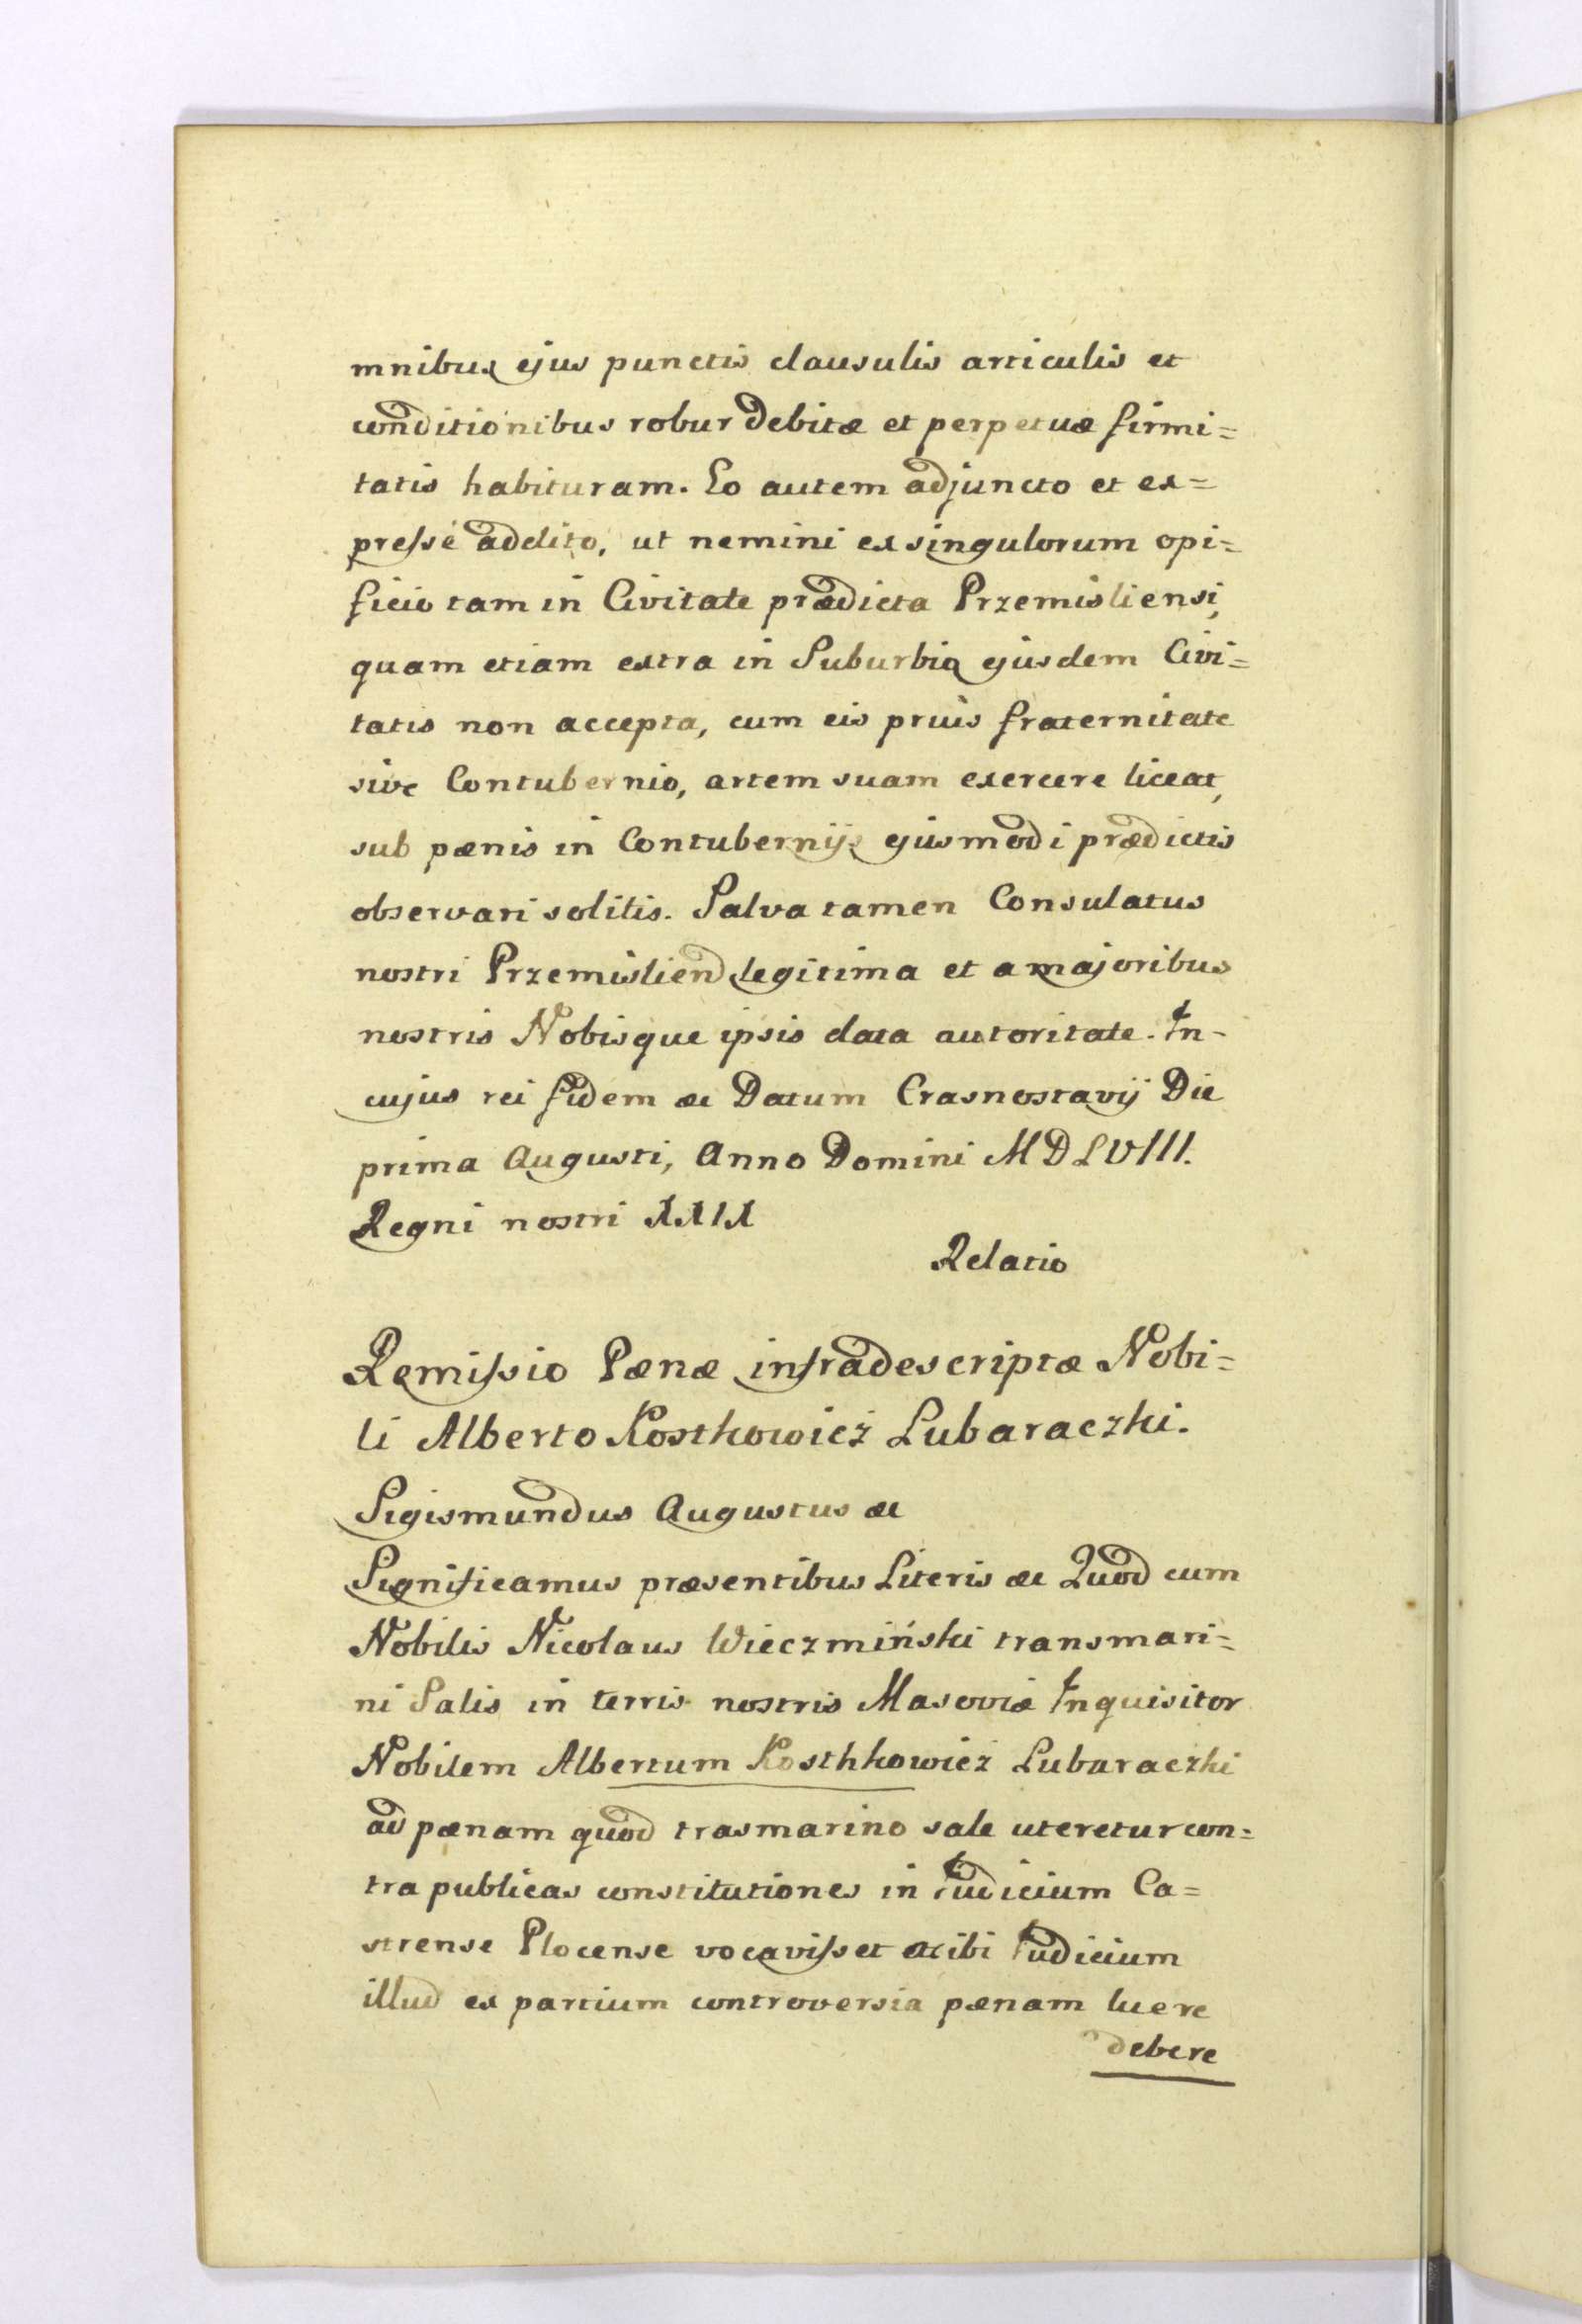 mnibus ejus punctis clausulis articulis et
conditionibus robur Debitæ et perpetuæ firmi=
tatis habituram. Eo autem adjuncto et ex=
presse addito, ut nemini ex singulorum opi=
ficio tam in Civitate prædicta Przemisliensi,
quam etiam extra in Suburbio ejusdem Civi=
tatis non accepta, cum eis prius fraternitate
sive Contubernio, artem suam exercere liceat,
sub pænis in Contubernijs ejusmodi prædictis
observari solitis. Salva tamen Consulatus
nostri Przemislien legitima et a majoribus
nostris Nobisque ipsis data autoritate. In-
cujus rei fidem æc Datum Crasnostavij Die
prima Augusti, Anno Domini MDLVIII.
Regni nostri XXIX
Relatio
Remissio Pænæ infradescriptæ Nobi=
li Alberto Kostkowicz Lubaraczki.
Sigismundus Augustus æc
Significamus præsentibus Literis æc Quod cum
Nobilis Nicolaus Wieczmiński transmari=
ni Salis in terris nostris Masoviæ Inquisitor
Nobilem Albertum Kosthkowicz Lubaraczki
ad pænam quod trasmarino sale uteretur con=
tra publicas constitutiones in Iudicium Ca=
strense Plocense vocavisset ac ibi Iudicium
illud ex partium controversia pænam luere
debere